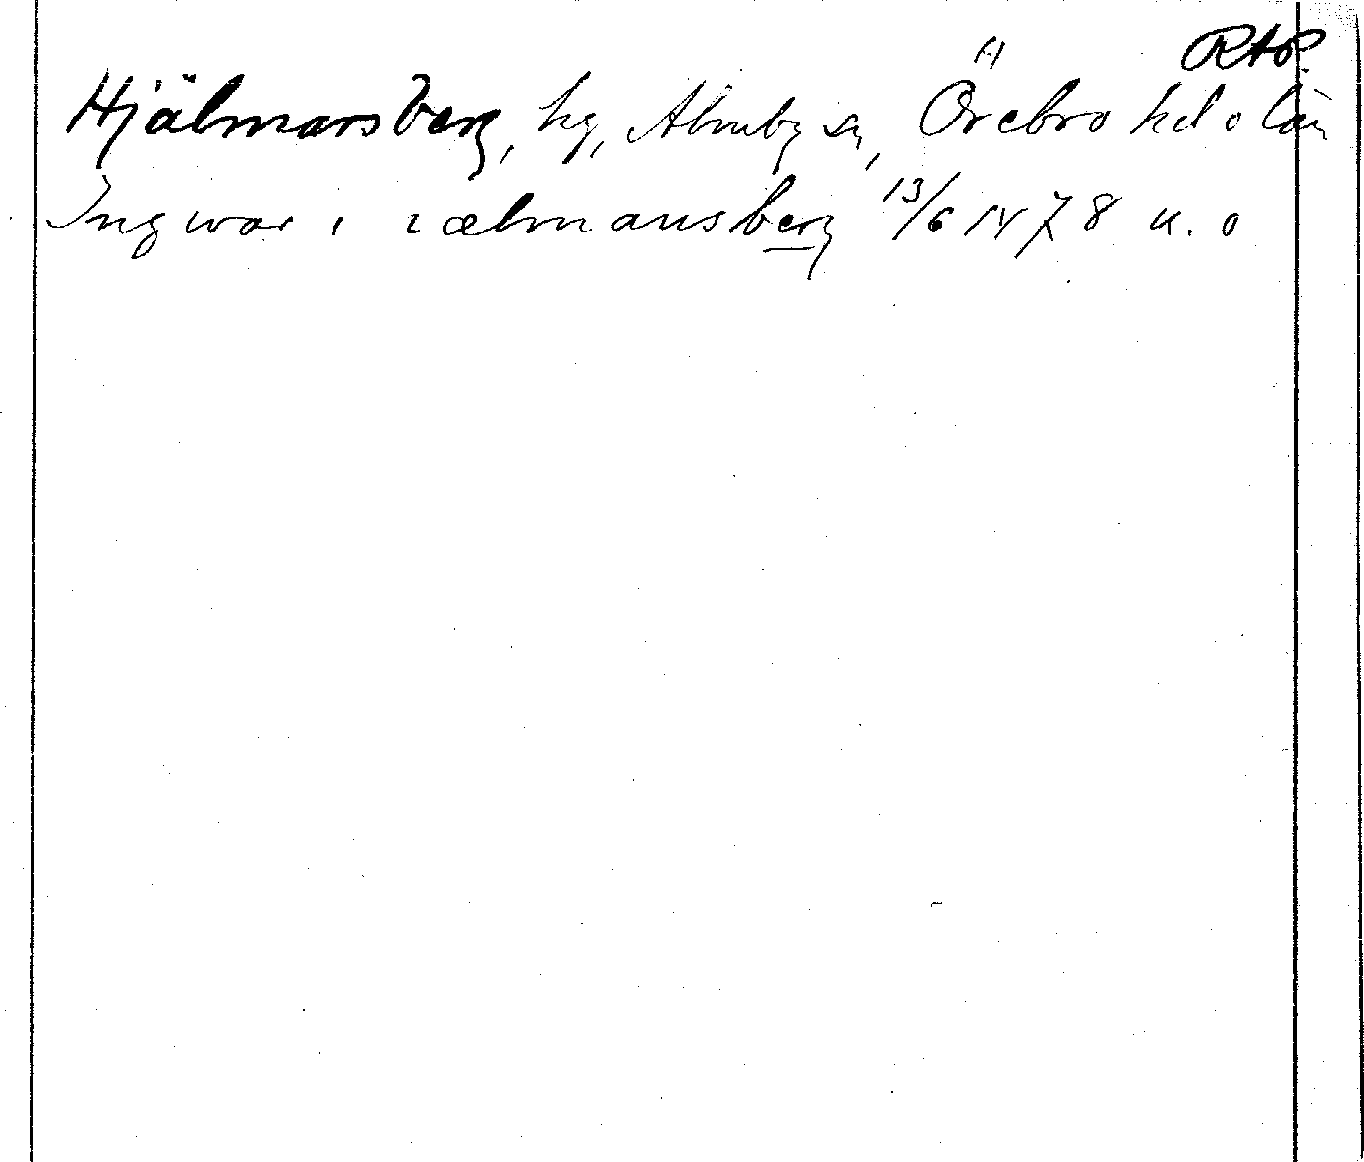 RAP.
Hjälmarsberg, hg, Almby sn, Örebro hd o län
Ingwar i iælmansberg 13/6 1478 u. o